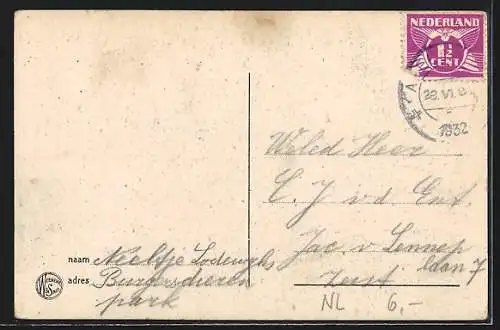 NEDERLAND
1½
CENT
1932
Weled Heer
C. J v. d Ent.
Jac. v. Lennep
laan 7
Zeist
naam Neeltje Lodewyks
adres Burgersdieren
park
NL 6,-